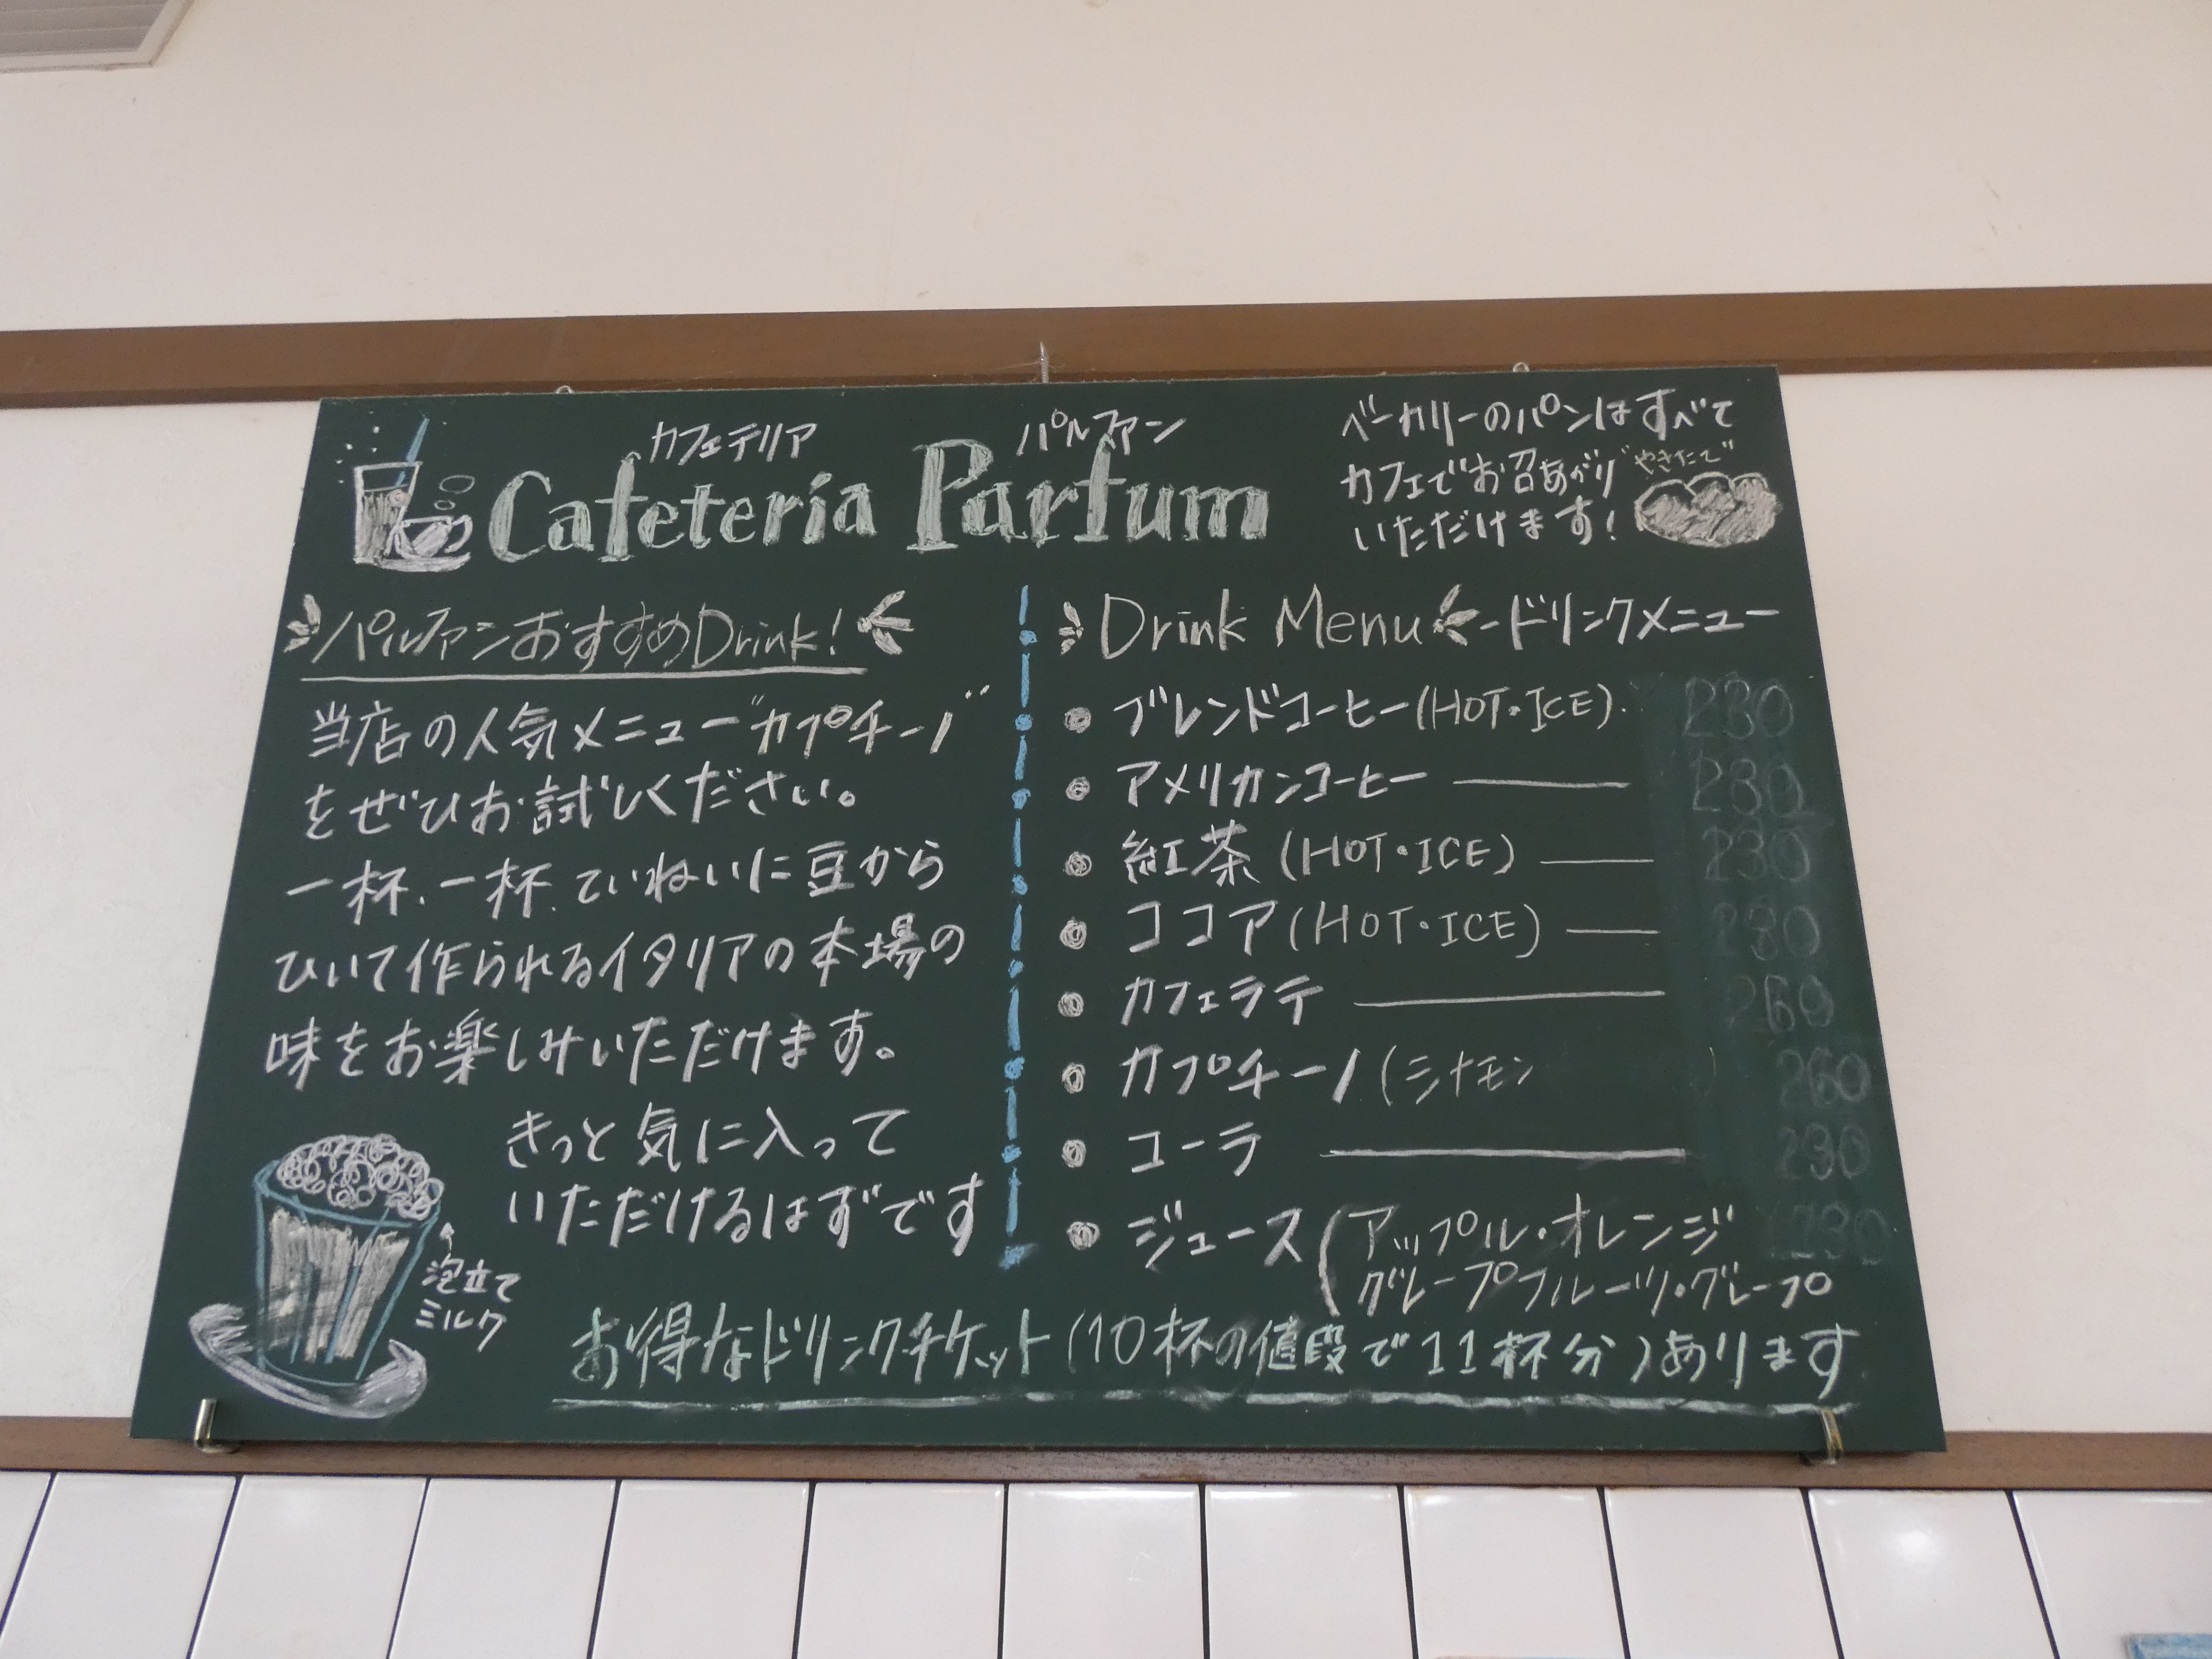 カフェテリア パルファン
Cafeteria Parfum
ベーカリーのパンはすべて
カフェでお召あがり
いただけます!
"やきたて"
パルファンおすすめDrink!
当店の人気メニュー"カプチーノ"
をぜひお試しください。
一杯、一杯、ていねいに豆から
ひいて作られるイタリアの本場の
味をお楽しみいただけます。
きっと気に入って
いただけるはずです
泡立て
ミルク
Drink Menu -ドリンクメニュー
ブレンドコーヒー(HOT・ICE) 230
アメリカンコーヒー 230
紅茶(HOT・ICE) 230
ココア(HOT・ICE) 230
カフェラテ 260
カプチーノ(シナモン ) 260
コーラ 230
ジュース(アップル・オレンジ 230
グレープフルーツ・グレープ
お得なドリンクチケット(10杯の値段で11杯分)あります